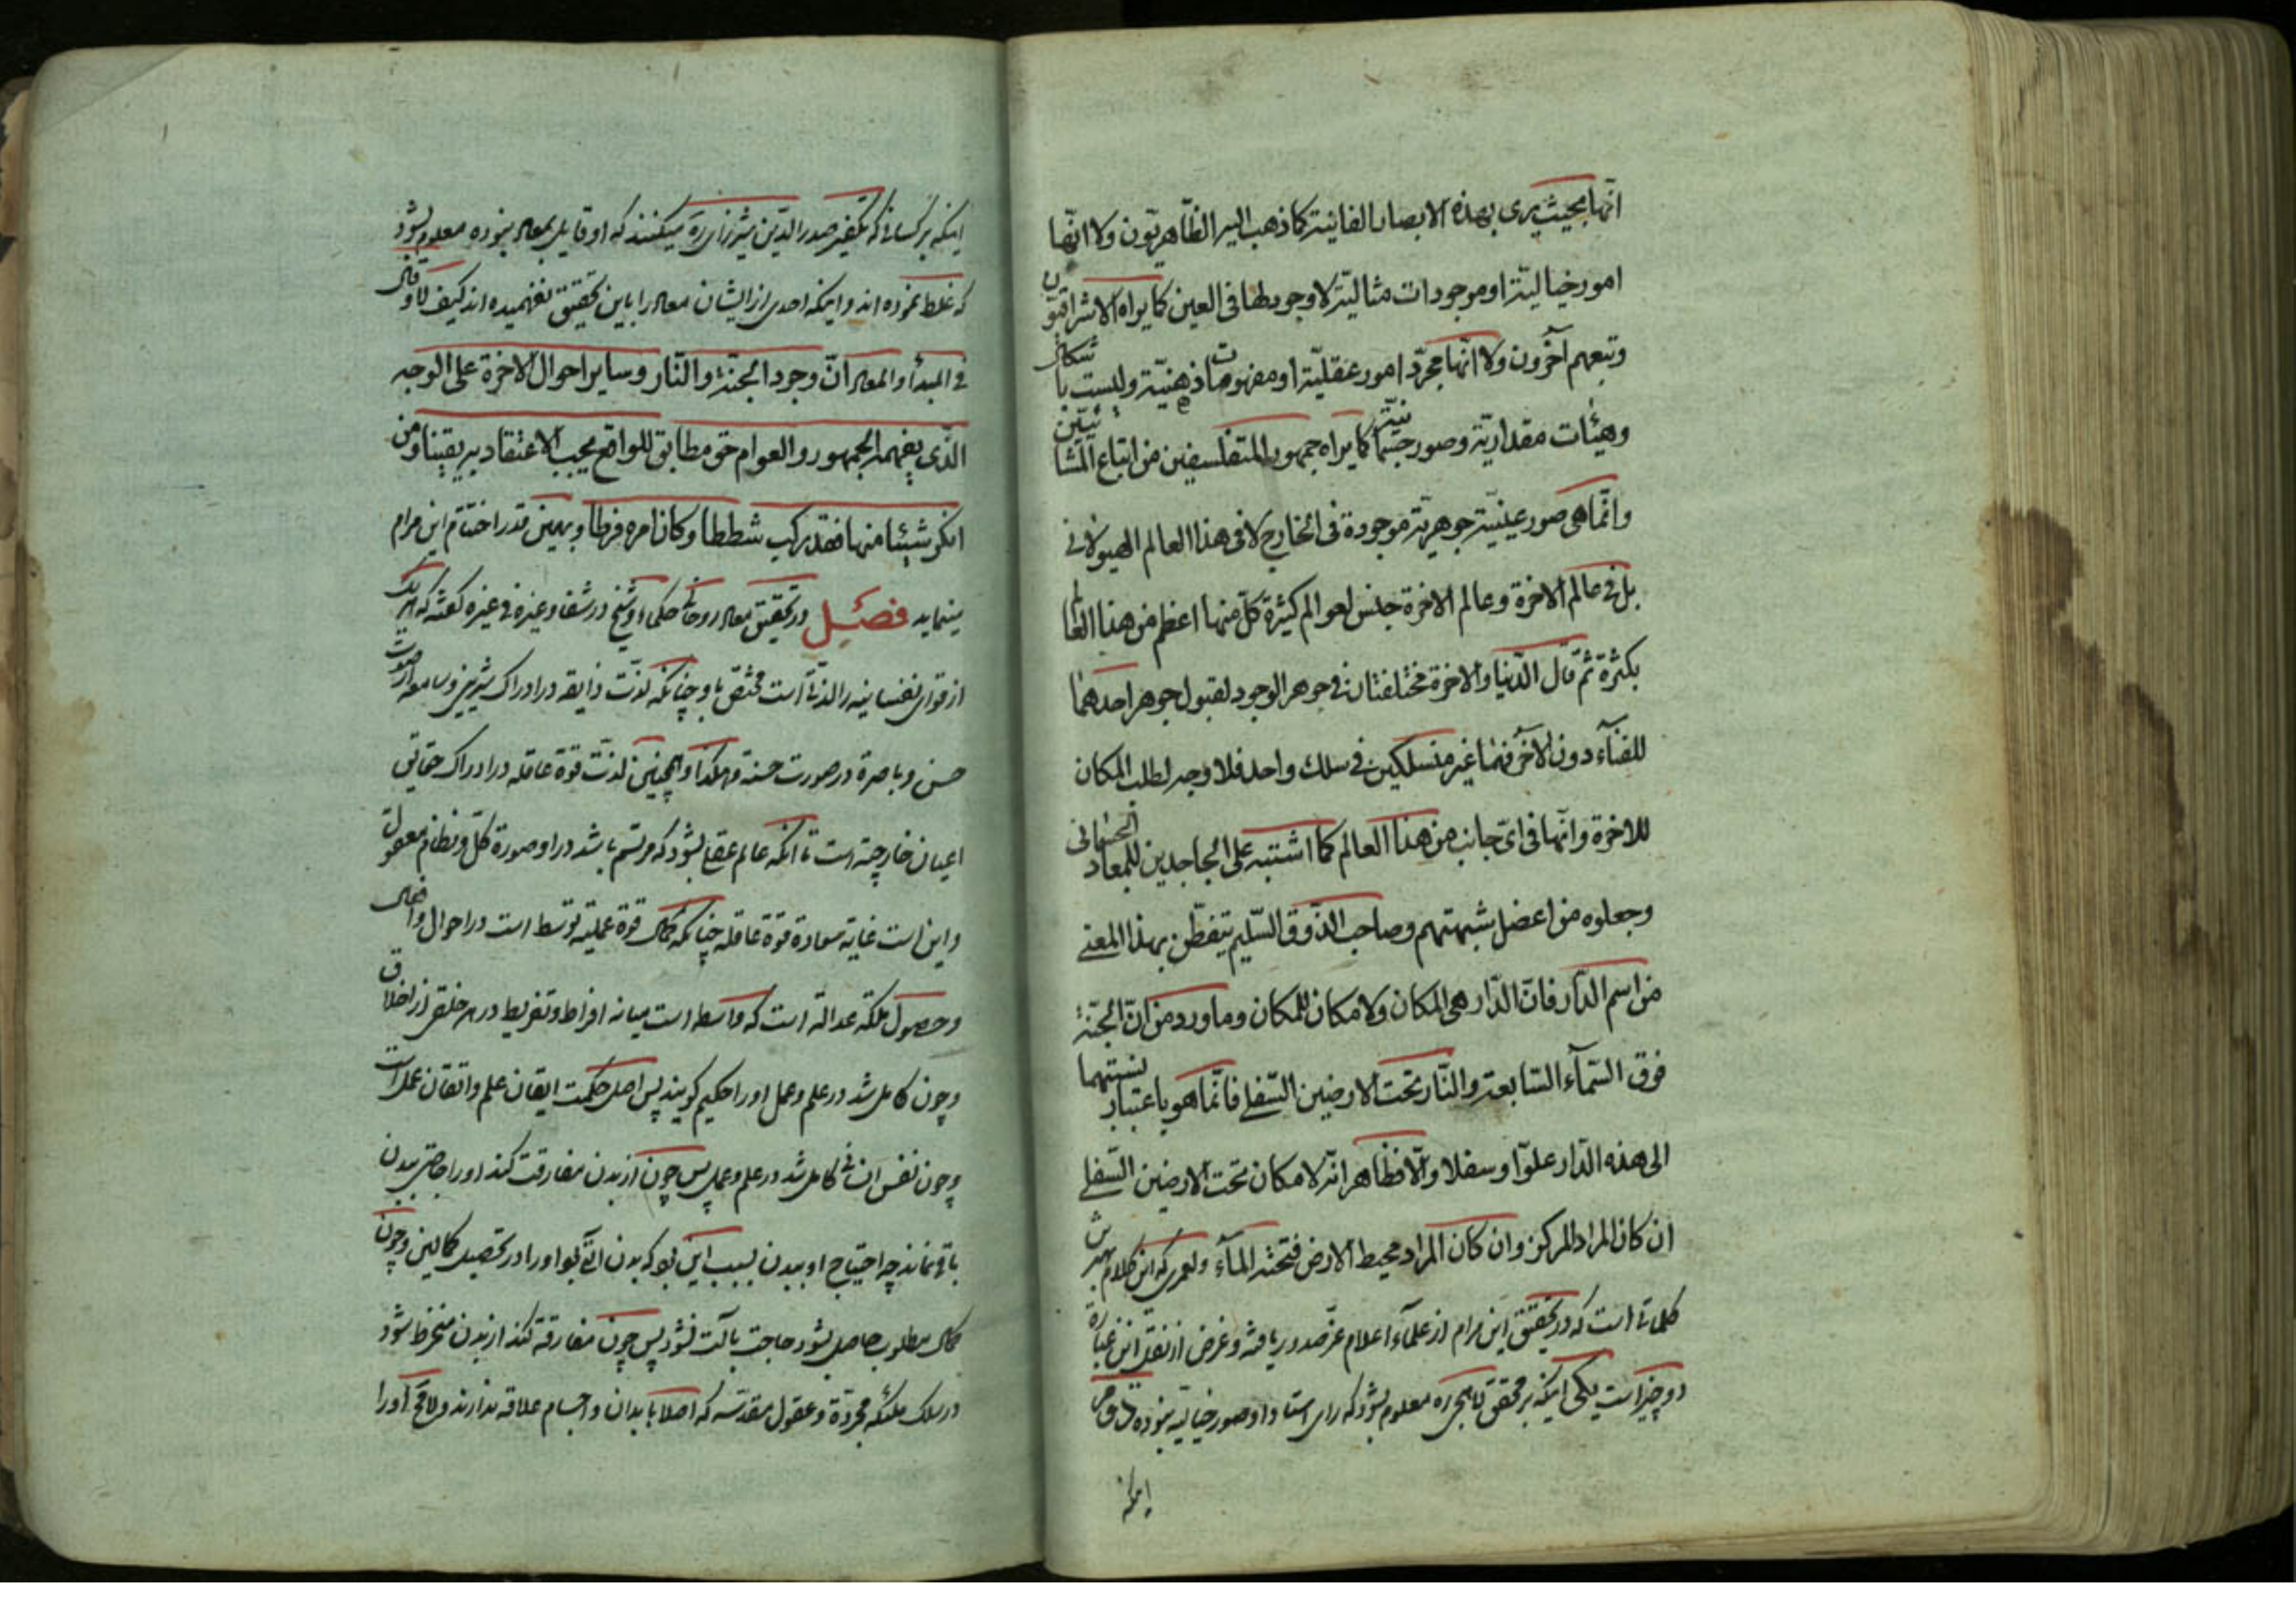 انّها بحيث يرى بهذه الابصار الفانية كما ذهب اليه الظّاهريّون ولا انّها
امور خياليّة او موجودات مثاليّة لا وجود لها فى العين كما يراه الاشراقيّون
وتبعهم آخرون ولا انّها مجرّد امور عقليّة او مفهومات ذهنيّة وليست باشكال
وهيئات مقداريّة وصور جسمانيّة كما يراه جمهور المتفلسفين من اتباع المشّائيّن
وانّما هى صور عينيّة جوهريّة موجودة فى الخارج لا فى هذا العالم الهيولانى
بل فى عالم الاخرة وعالم الاخرة جنس لعوالم كثيرة كلّ منها اعظم من هذا العالم
بكثرة ثمّ قال الدّنيا والاخرة مختلفتان فى جوهر الوجود لقبول جوهر احدهما
للفنآء دون الآخر فهما غير منسلكين فى سلك واحد فلا وجه لطلب المكان
للاخرة وانّها فى اىّ جانب من هذا العالم كما اشتبه على الجاحدين للمعاد الجسمانى
وجعلوه من اعضل شبهتهم وصاحب الذّوق السّليم يتفطّن بهذا المعنى
من اسم الدّار فانّ الدّار هى المكان ولا مكان للمكان وما ورد من انّ الجنّة
فوق السّمآء السّابعة والنّار تحت الارضين السّفلى فانّما هو باعتبار نسبتهما
الى هذه الدّار علوّا وسفلا والّا فظاهر انّه لا مكان تحت الارضين السّفلى
ان كان المراد المركز وان كان المراد محيط الارض فتحته المآء ولعمرى كه اين كلام بهترين
كلماتى است كه در تحقيق اين مرام از علمآء اعلام عزّ صدور يافته وغرض از نقل اين عبارة
دو چيز است يكى اينكه بر محقق لاهيجى ره معلوم بشود كه راى استاد او صور خياليه نبوده
اينكه
اينكه بر كسانى كه تكفير صدر الدّين شيرازى ره ميكنند كه او قايل بمعاد نبوده معلوم بشود
كه غلط نموده اند و اينكه احدى از ايشان معاد را باين تحقيق نفهميده اند كيف لا وقال
فى المبدأ والمعاد انّ وجود الجنّة والنّار وساير احوال الاخرة على الوجه
الّذى يفهمه الجمهور والعوام حق مطابق للواقع يجب الاعتقاد به يقينا ومن
انكر شيئا منها فقد ركب شططا وكان امره فرطا و بهمين قدر اختتام اين مرام
مينمايد فصل در تحقيق معاد روحانى حكماء و شيخ در شفا وغيره فى غيره گفته كه هر يك
از قواى نفسانيه را لذّتى است مختصّ باو چنانكه لذّت ذايقه در ادراك شيرينى وسامعه از صوت
حسن وباصرة در صورت حسنه وهكذا وهمچنين لذّت قوّة عاقله در ادراك حقايق
اعيان خارجيّه است تا آنكه عالم عقلى بشود كه مرتسم باشد در او صورة كلّ ونظام معقول
واين است غاية سعادة قوّة عاقله چنانكه كمال قوّة عمليّه توسّط است در احوال وافعال
وحصول ملكه عدالة است كه واسطه است ميانه افراط وتفريط در هر خلقى از اخلاق
وچون كامل شد در علم وعمل او را حكيم گويند پس اصل حكمت ايقان علم واتقان عمل است
وچون نفس انسانى كامل شد در علم وعمل پس چون از بدن مفارقت كند او را حاجتى ببدن
باقى نماند چه احتياج او ببدن بسبب اين بود كه بدن آلتى بود او را در تحصيل كمالين وچون
كمال مطلوب حاصل بشود حاجت بآلت نشود پس چون مفارقة كند از بدن منخرط شود
در سلك ملئكه مجرّدة وعقول مقدّسه كه اصلا بابدان واجسام علاقه ندارند او را